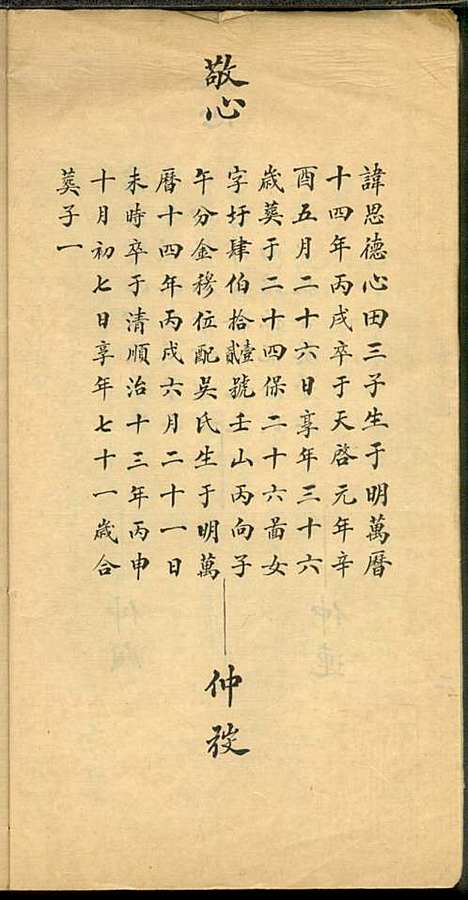 敬心
諱思德心田三子生于明萬曆
十四年丙戌卒于天啓元年辛
酉五月二十六日享年三十六
歲葬于二十四保二十六啚女
字圩肆伯拾貳壹號壬山丙向子
午分金穆位配吳氏生于明萬
曆十四年丙戌六月二十一日
未時卒于清順治十三年丙申
十月初七日享年七十一歲合
葬子一
仲